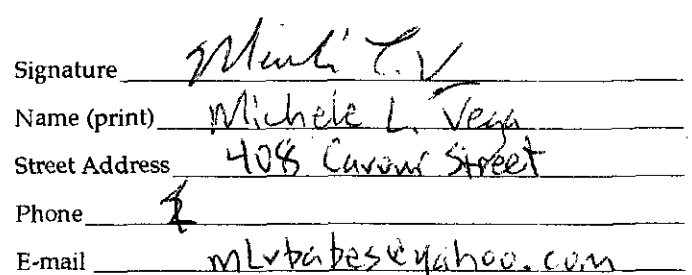 Signature
Name (print) Michele L. Vega
Street Address 408 Cavour Street
Phone
E-mail mlvbabes@yahoo.com